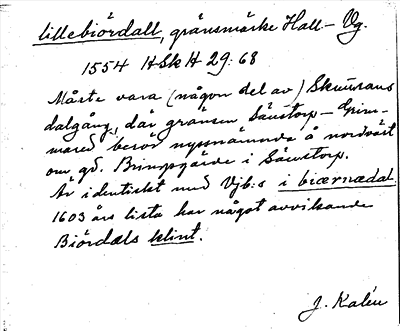 lillebiördall, gränsmärke Hall – Vg.
1554 HSkH 29:68
Måste vara (någon del av) Skuurans
dalgång, där gränsen Sävstorp – Grim-
mared berör nyssnämnda å nordväst
om gd. Brimpgärde i Sävstorp.
Är identiskt med Vjb:s i biærnædal.
1603 års lista har något avvikande
Biördæls klint.
J. Kalén